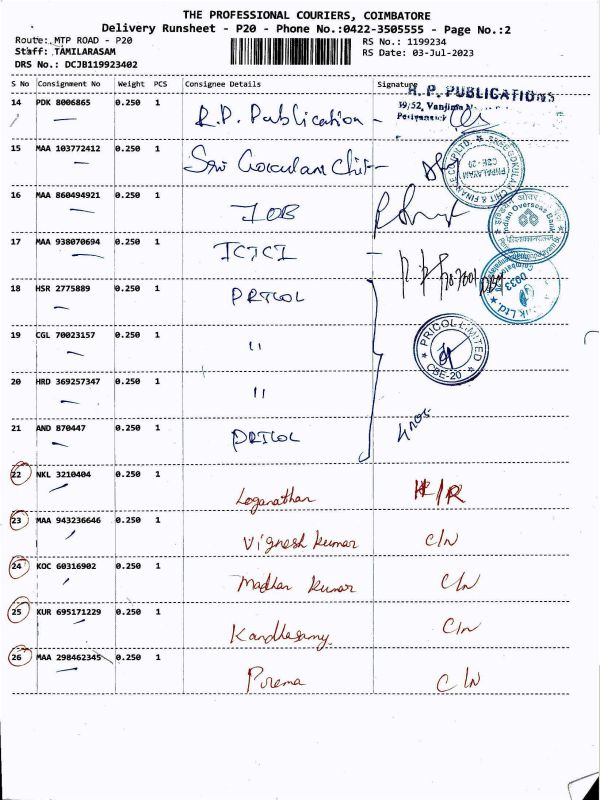 THE PROFESSIONAL COURIERS, COIMBATORE
Delivery Runsheet - P20 - Phone No.:0422-3505555 - Page No.:2
Route: MTP ROAD - P20 RS No.: 1199234
Staff: TAMILARASAM RS Date: 03-Jul-2023
DRS No.: DCJB119923402
S No Consignment No Weight PCS Consignee Details Signature
R. P. PUBLICATIONS
14 PDK 8006865 0.250 1 R.P. Publication -
39/52, Vanjima
15 MAA 103772412 0.250 1 Sri Gokulam Chit -
16 MAA 860494921 0.250 1 IOB
Indian Overseas Bank
17 MAA 938070694 0.250 1 ICICI -
0033
18 HSR 2775889 0.250 1 PRICOL
19 CGL 70023157 0.250 1 "
PRICOL LIMITED
CBE-20
20 HRD 369257347 0.250 1 "
21 AND 870447 0.250 1 PRICOL 4 nos
22 NKL 3210404 0.250 1 Loganathan H/R
23 MAA 943236646 0.250 1 Vignesh kumar C/N
24 KOC 60316902 0.250 1 Madhan kumar C/N
25 KUR 695171229 0.250 1 Kandhasamy C/N
26 MAA 298462345 0.250 1 Prema C/N